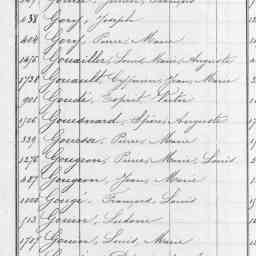 438 Gory, Joseph
404 Gory, Pierre, Marie
1475 Gouailler, Louis, Marie, Auguste
1728 Gouault, Cyprien, Jean, Marie
908 Goudé, Esprit, Victor
1726 Auguste
339 Pierre, Marie
1276 Gougeon, Pierre, Marie, Louis
487 Gougeon, Jean, Marie
Gougé, François, Louis
713 Gouin, Ludovic
1707 Gouin, Louis, Marie